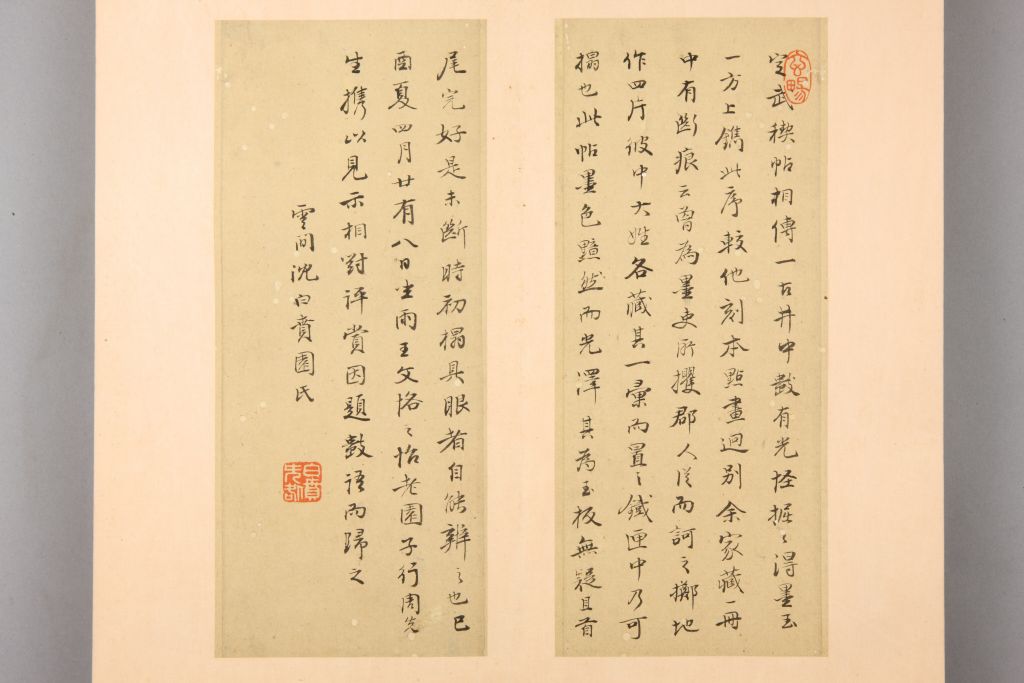 定武稧帖相傳一古井中數有光怪掘之得墨玉
一方上鐫此序較他刻本點畫迥別余家藏一冊
中有斷痕云曾為墨吏所攫郡人從而訶之擲地
作四片彼中大姓各藏其一彙而置之鐵匣中乃可
搨也此帖墨色黯然而光澤其為玉板無疑且首
尾完好是未斷時初搨具眼者自能辨之也己
酉夏四月廿有八日坐雨王文恪之怡老園子行周先
生携以見示相對評賞因題數語而歸之
雲間沈白賁園氏